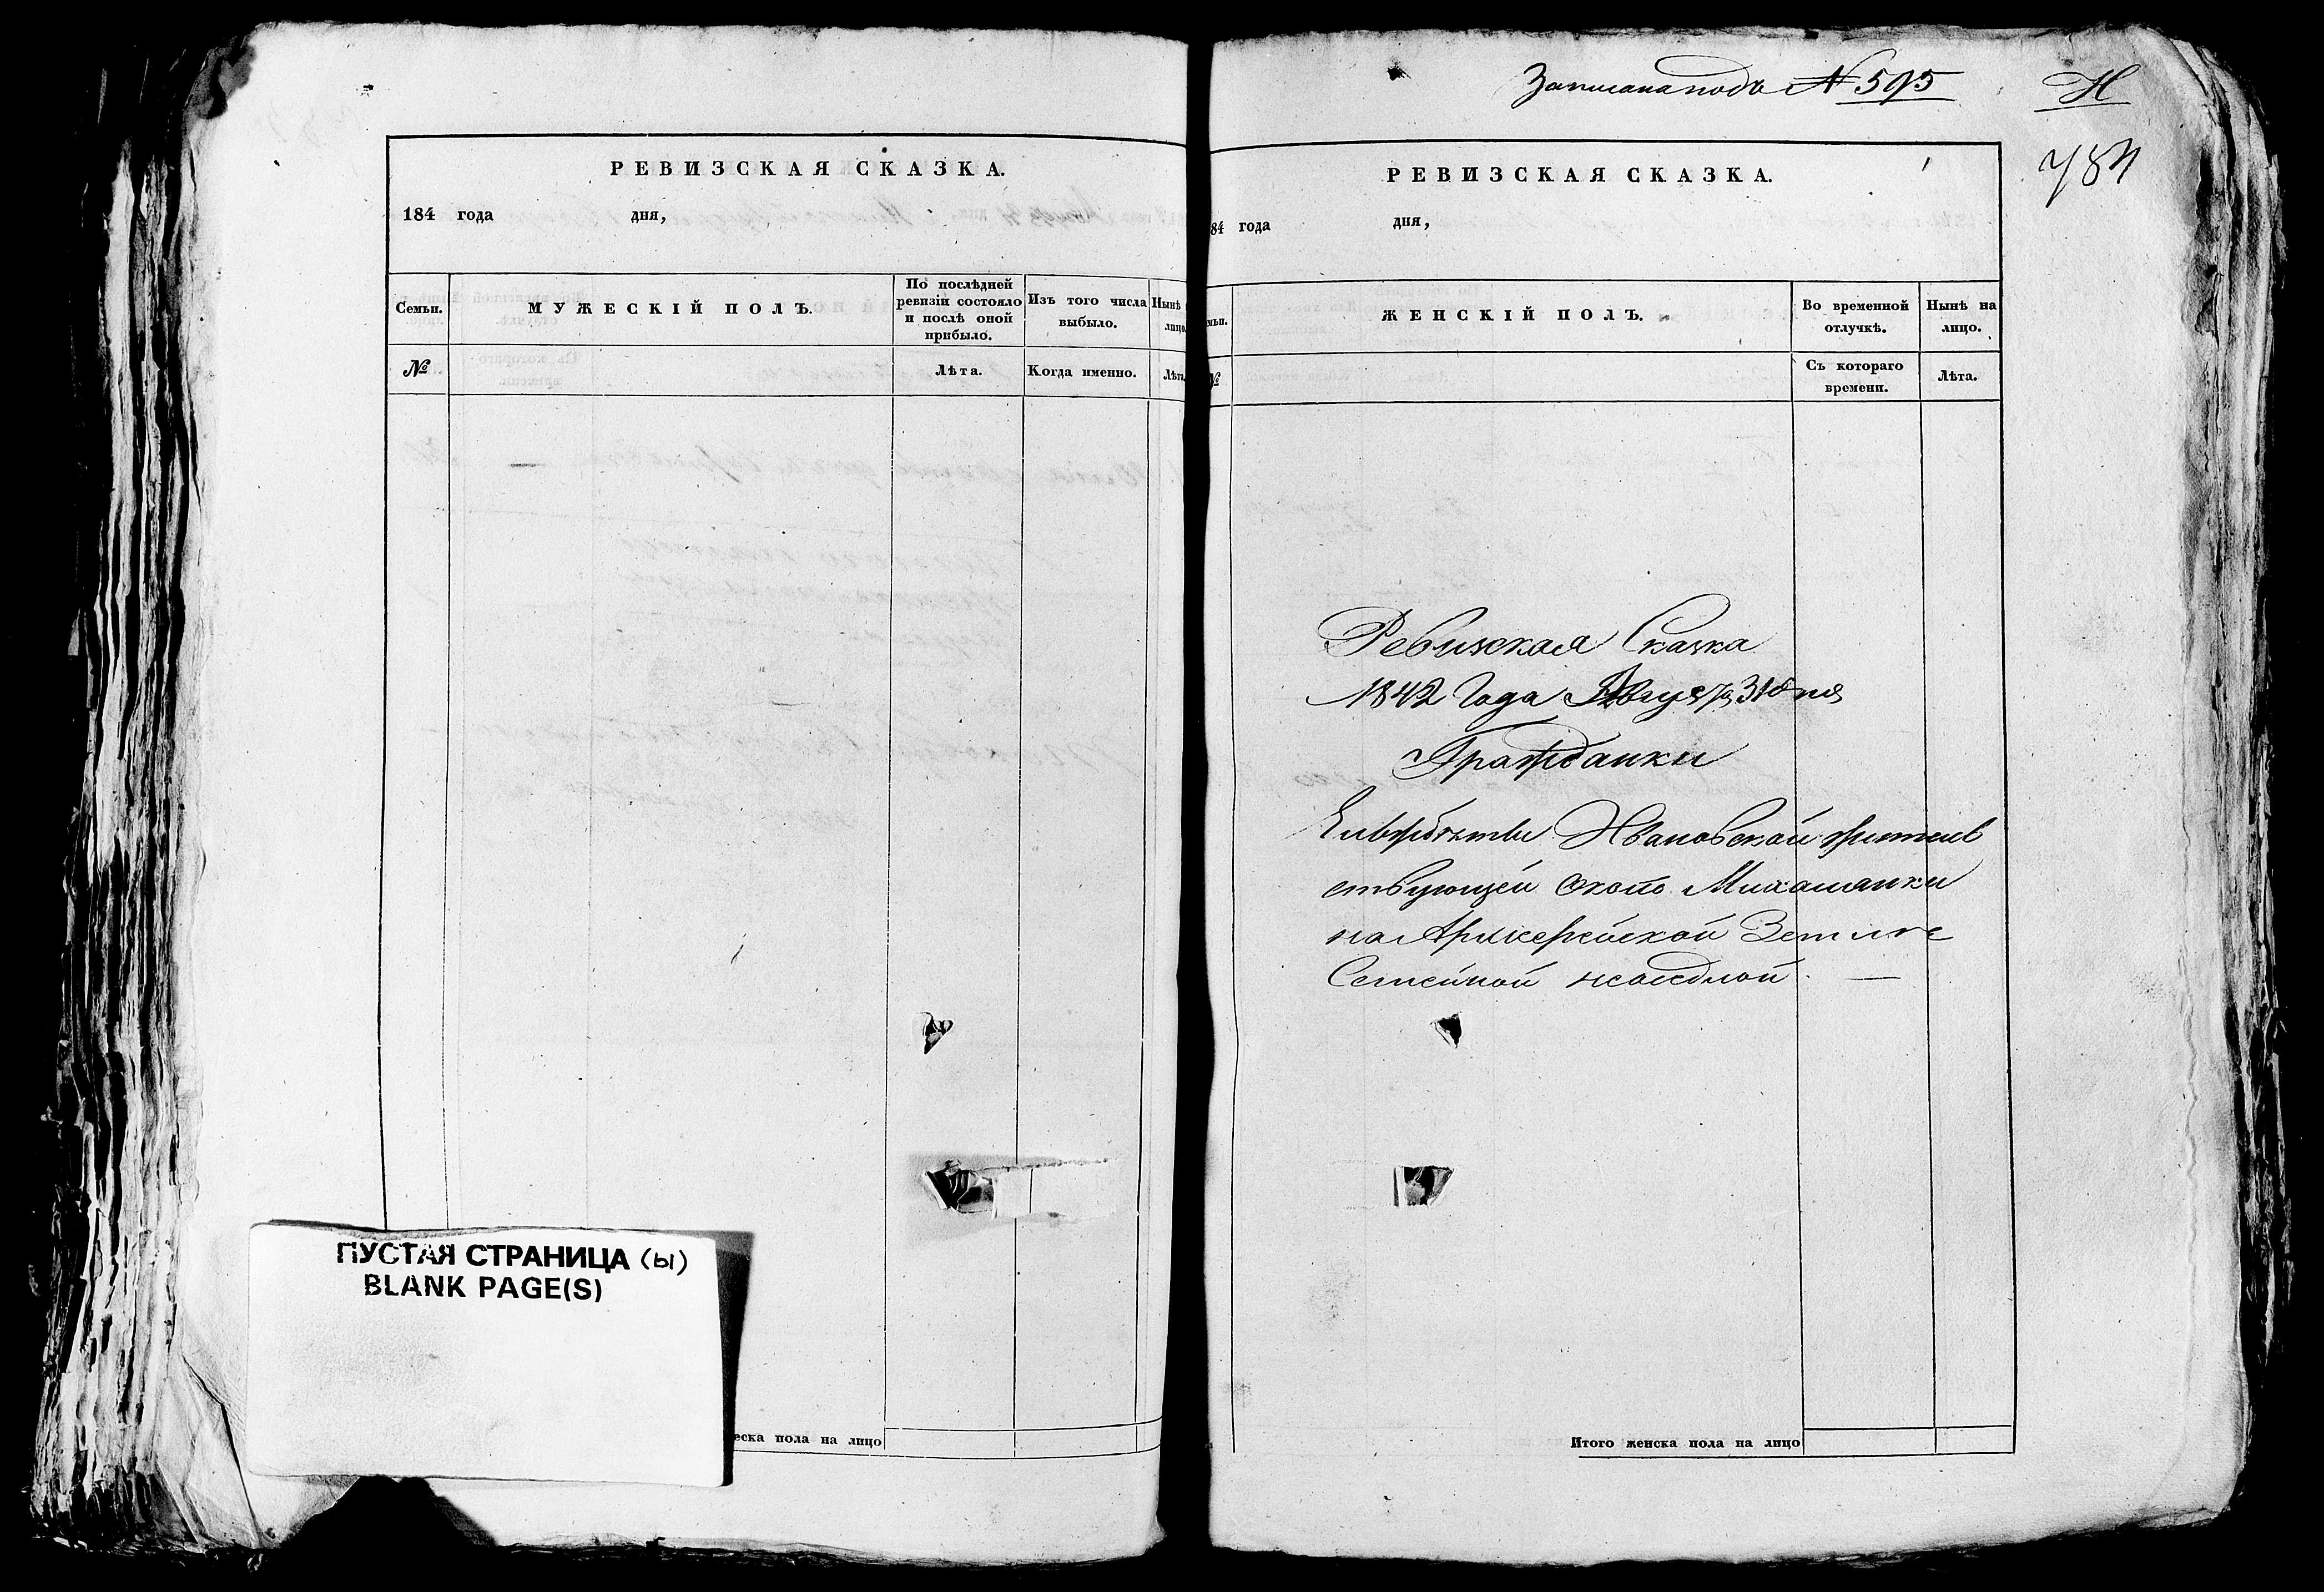 РЕВИЗСКАЯ СКАЗКА.
184 года дня,
Семьи. МУЖЕСКІЙ ПОЛЪ. По послѣдней ревизіи состояло и послѣ оной прибыло. Изъ того числа выбыло. Нынѣ лицо
№ Лѣта. Когда именно. Лѣта
ПУСТАЯ СТРАНИЦА (Ы)
BLANK PAGE(S)
еска пола на лицо
Записана подъ № 595
Н
784
РЕВИЗСКАЯ СКАЗКА.
84 года дня,
мьи. ЖЕНСКІЙ ПОЛЪ. Во временной отлучкѣ. Нынѣ на лицо.
№ Съ котораго времени. Лѣта.
Ревизская Сказка
1842 Года Августа 31 дня
Гражданки
Ивановской жител
ствующей около Михалианки
на Архиерейской Земле
Семейной
Итого женска пола на лицо